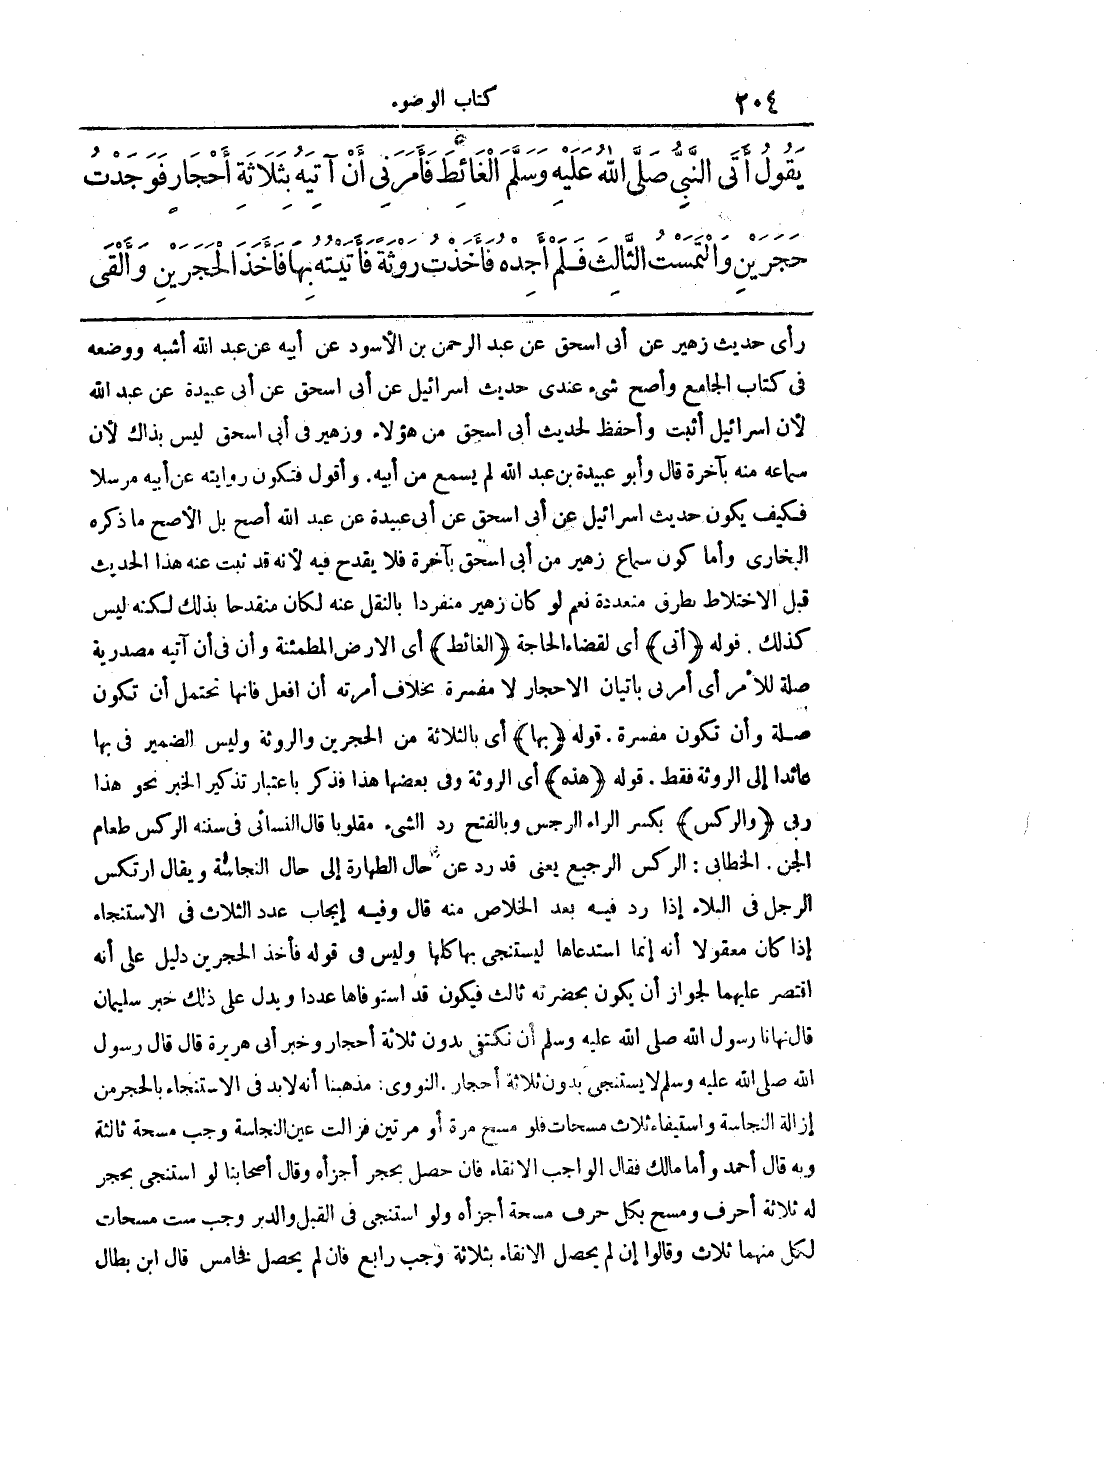 ٢٠٤ كتاب الوضوء
يَقُولُ أَتَى النَّبِيُّ صَلَّى اللهُ عَلَيْهِ وَسَلَّمَ الْغَائِطَ فَأَمَرَنِي أَنْ آتِيَهُ بِثَلَاثَةِ أَحْجَارٍ فَوَجَدْتُ
حَجَرَيْنِ وَالْتَمَسْتُ الثَّالِثَ فَلَمْ أَجِدْهُ فَأَخَذْتُ رَوْثَةً فَأَتَيْتُهُ بِهَا فَأَخَذَ الْحَجَرَيْنِ وَأَلْقَى
رأى حديث زهير عن أبى اسحق عن عبد الرحمن بن الأسود عن أبيه عن عبد الله أشبه ووضعه
فى كتاب الجامع وأصح شىء عندى حديث اسرائيل عن أبى اسحق عن أبى عبيدة عن عبد الله
لأن اسرائيل أثبت وأحفظ لحديث أبى اسحق من هؤلاء وزهير فى أبى اسحق ليس بذاك لأن
سماعه منه بآخرة قال وأبو عبيدة بن عبد الله لم يسمع من أبيه. وأقول فتكون روايته عن أبيه مرسلا
فكيف يكون حديث اسرائيل عن أبى اسحق عن أبى عبيدة عن عبد الله أصح بل الأصح ما ذكره
البخارى وأما كون سماع زهير من أبى اسحق بآخرة فلا يقدح فيه لأنه قد ثبت عنه هذا الحديث
قبل الاختلاط بطرق متعددة نعم لو كان زهير منفردا بالنقل عنه لكان منقدحا بذلك لكنه ليس
كذلك . قوله ﴿أتى﴾ أى لقضاء الحاجة ﴿الغائط﴾ أى الارض المطمئنة وأن فى أن آتيه مصدرية
صلة للأمر أى أمرنى باتيان الاحجار لا مفسرة بخلاف أمرته أن افعل فانها تحتمل أن تكون
صلة وأن تكون مفسرة . قوله ﴿بها﴾ أى بالثلاثة من الحجرين والروثة وليس الضمير فى بها
عائدا إلى الروثة فقط . قوله ﴿هذه﴾ أى الروثة وفى بعضها هذا فذكر باعتبار تذكير الخبر نحو هذا
ربى ﴿والركس﴾ بكسر الراء الرجس وبالفتح رد الشىء مقلوبا قال النسائى فى سننه الركس طعام
الجن . الخطابى : الركس الرجيع يعنى قد رد عن حال الطهارة إلى حال النجاسة ويقال ارتكس
الرجل فى البلاء إذا رد فيه بعد الخلاص منه قال وفيه إيجاب عدد الثلاث فى الاستنجاء
إذا كان معقولا أنه إنما استدعاها ليستنجى بها كلها وليس فى قوله فأخذ الحجرين دليل على أنه
اقتصر عليهما لجواز أن يكون بحضرته ثالث فيكون قد استوفاها عددا ويدل على ذلك خبر سليمان
قال نهانا رسول الله صلى الله عليه وسلم أن نكتفى بدون ثلاثة أحجار وخبر أبى هريرة قال قال رسول
الله صلى الله عليه وسلم لا يستنجى بدون ثلاثة أحجار . النووى : مذهبنا أنه لابد فى الاستنجاء بالحجر من
إزالة النجاسة واستيفاء ثلاث مسحات فلو مسح مرة أو مرتين فزالت عين النجاسة وجب مسحة ثالثة
وبه قال أحمد وأما مالك فقال الواجب الانقاء فان حصل بحجر أجزأه وقال أصحابنا لو استنجى بحجر
له ثلاثة أحرف ومسح بكل حرف مسحة أجزأه ولو استنجى فى القبل والدبر وجب ست مسحات
لكل منهما ثلاث وقالوا إن لم يحصل الانقاء بثلاثة وجب رابع فان لم يحصل فخامس قال ابن بطال